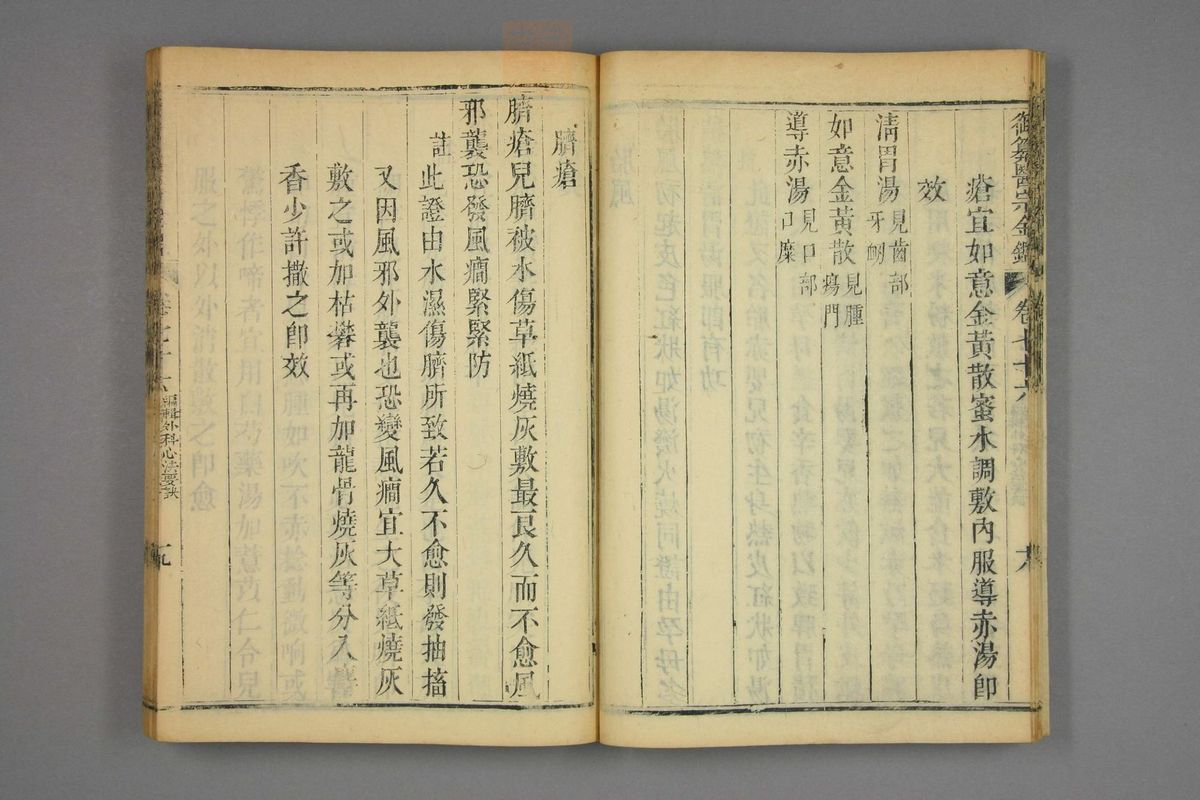 御纂醫宗金鑑 卷七十六
瘡宜如意金黃散蜜水調敷內服導赤湯即
效
清胃湯 見齒部牙衄
如意金黃散 見腫瘍門
導赤湯 見口部口糜
臍瘡
臍瘡兒臍被水傷草紙燒灰敷最良久而不愈風
邪襲恐發風癇緊緊防
註 此證由水濕傷臍所致若久不愈則發抽搐
又因風邪外襲也恐變風癇宜大草紙燒灰
敷之或加枯礬或再加龍骨燒灰等分入麝
香少許撒之即效
編輯外科心法要訣